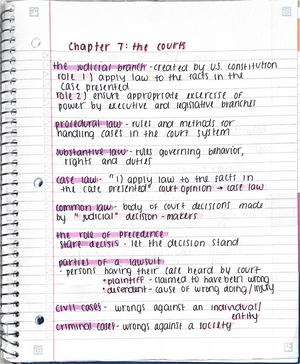 Chapter 7: the courts
the judicial branch - created by U.S. constitution
role 1) apply law to the facts in the
case presented
role 2) ensure appropriate excercise of
power by executive and legislative branches
procedural law - rules and methods for
handling cases in the court system
substantive law - rules governing behavior,
rights and duties
case law - "1) apply law to the facts in
the case presented" court opinion → case law
common law - body of court decisions made
by "judicial" decision-makers
the role of precedence
stare decisis - let the decision stand
parties of a lawsuit
- persons having their case heard by court
*plaintiff - claimed to have been wrong
*defendant - cause of wrong doing/injury
civil cases - wrongs against an individual/
entity
criminal cases - wrongs against a society